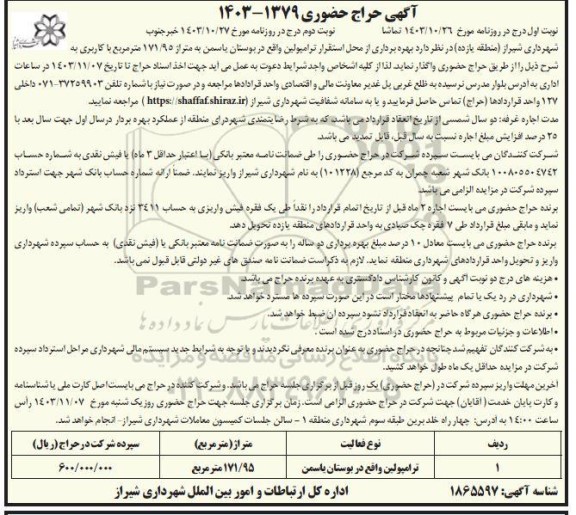 آگهی حراج حضوری ۱۳۷۹-۱۴۰۳
نوبت اول درج در روزنامه مورخ ۱۴۰۳/۱۰/۲۶ تماشا نوبت دوم درج در روزنامه مورخ ۱۴۰۳/۱۰/۲۷ خبرجنوب
شهرداری شیراز (منطقه یازده) در نظر دارد بهره برداری از محل استقرار ترامپولین واقع در بوستان یاسمن به متراژ ۱۷۱/۹۵ مترمربع با کاربری به
شرح ذیل را از طریق حراج حضوری واگذار نماید. لذا از کلیه اشخاص واجد شرایط دعوت به عمل می آید جهت اخذ اسناد حراج تا تاریخ ۱۴۰۳/۱۱/۰۷ در ساعات
اداری به آدرس بلوار مدرس نرسیده به ظلع غربی پل غدیر معاونت مالی و اقتصادی واحد قراردادها مراجعه و در صورت نیاز با شماره تلفن ۳۷۲۵۹۹۰۳-۰۷۱ داخلی
۱۳۷ واحد قراردادها (حراج) تماس حاصل فرمایید و یا به سامانه شفافیت شهرداری شیراز (https://shaffaf.shiraz.ir) مراجعه نمایید.
مدت اجاره غرفه: دو سال شمسی از تاریخ انعقاد قرارداد می باشد، که به شرط رضایتمندی شهردرای منطقه از عملکرد بهره بردار درسال اول جهت سال بعد با
۲۵ درصد افزایش مبلغ اجاره نسبت به سال قبل، قابل تمدید می باشد.
شرکت کنندگان می بایست سپرده شرکت در حراج حضوری را طی ضمانت نامه معتبر بانکی (با اعتبار حداقل ۳ ماه) یا فیش نقدی به شماره حساب
۱۰۰۸۰۵۵۰۴۷۴۲ بانک شهر شعبه چمران به کد مرجع (۱۰۱۲۲۸) به نام شهرداری شیراز واریز نمایند. ضمنا ارائه شماره حساب بانک شهر جهت استرداد
سپرده شرکت در مزایده الزامی می باشد.
برنده حراج حضوری می بایست اجاره ۲ ماه قبل از تاریخ اتمام قرارداد را نقدا طی یک فقره فیش واریزی به حساب ۳۴۱۱ نزد بانک شهر (تمامی شعب) واریز
نماید و مابقی مبلغ قرارداد طی ۷ فقره چک صیادی به واحد قراردادهای منطقه یازده تحویل دهد.
برنده حراج حضوری می بایست معادل ۱۰ درصد مبلغ بهره برداری دو ساله را به صورت ضمانت نامه معتبر بانکی یا (فیش نقدی) به حساب سپرده شهرداری
واریز و تحویل واحد قراردادهای شهرداری منطقه نماید. لازم به ذکر است ضمانت نامه صندیق های غیر دولتی قابل قبول نمی باشد.
• هزینه های درج دو نوبت آگهی و کانون کارشناس دادگستری به عهده برنده حراج می باشد.
• شهرداری در رد یک یا تمام پیشنهادها مختار است در این صورت سپرده ها مسترد خواهد شد.
• برنده حراج حضوری هرگاه حاضر به انعقاد قرارداد نشود سپرده آن ضبط خواهد شد.
• اطلاعات و جزئیات مربوط به حراج حضوری در اسناد درج شده است.
• به شرکت کنندگان تفهیم شد چنانچه در حراج حضوری به عنوان برنده معرفی نگردیدند و با توجه به شرایط جدید سیستم مالی شهرداری مراحل استرداد سپرده
شرکت در مزایده حداقل یک ماه طول خواهد کشید.
آخرین مهلت واریز سپرده شرکت در (حراج حضوری) یک روز قبل از برگزاری جلسه حراج می باشد. و شرکت کننده در حراج می بایست اصل کارت ملی یا شناسنامه
و کارت پایان خدمت (آقایان) جهت شرکت در حراج حضوری الزامی است. زمان برگزاری جلسه جهت حراج حضوری روز یک شنبه مورخ ۱۴۰۳/۱۱/۰۷ رأس
ساعت ۱۴:۰۰ به آدرس: چهار راه خلدبرین طبقه سوم شهرداری منطقه ۱ - سالن جلسات کمیسیون معاملات شهرداری شیراز- انجام خواهد شد.
ردیف نوع فعالیت متراژ (مترمربع) سپرده شرکت در حراج (ریال)
۱ ترامپولین واقع در بوستان یاسمن ۱۷۱/۹۵ مترمربع ۶۰۰/۰۰۰/۰۰۰
شناسه آگهی: ۱۸۶۵۵۹۷ اداره کل ارتباطات و امور بین الملل شهرداری شیراز